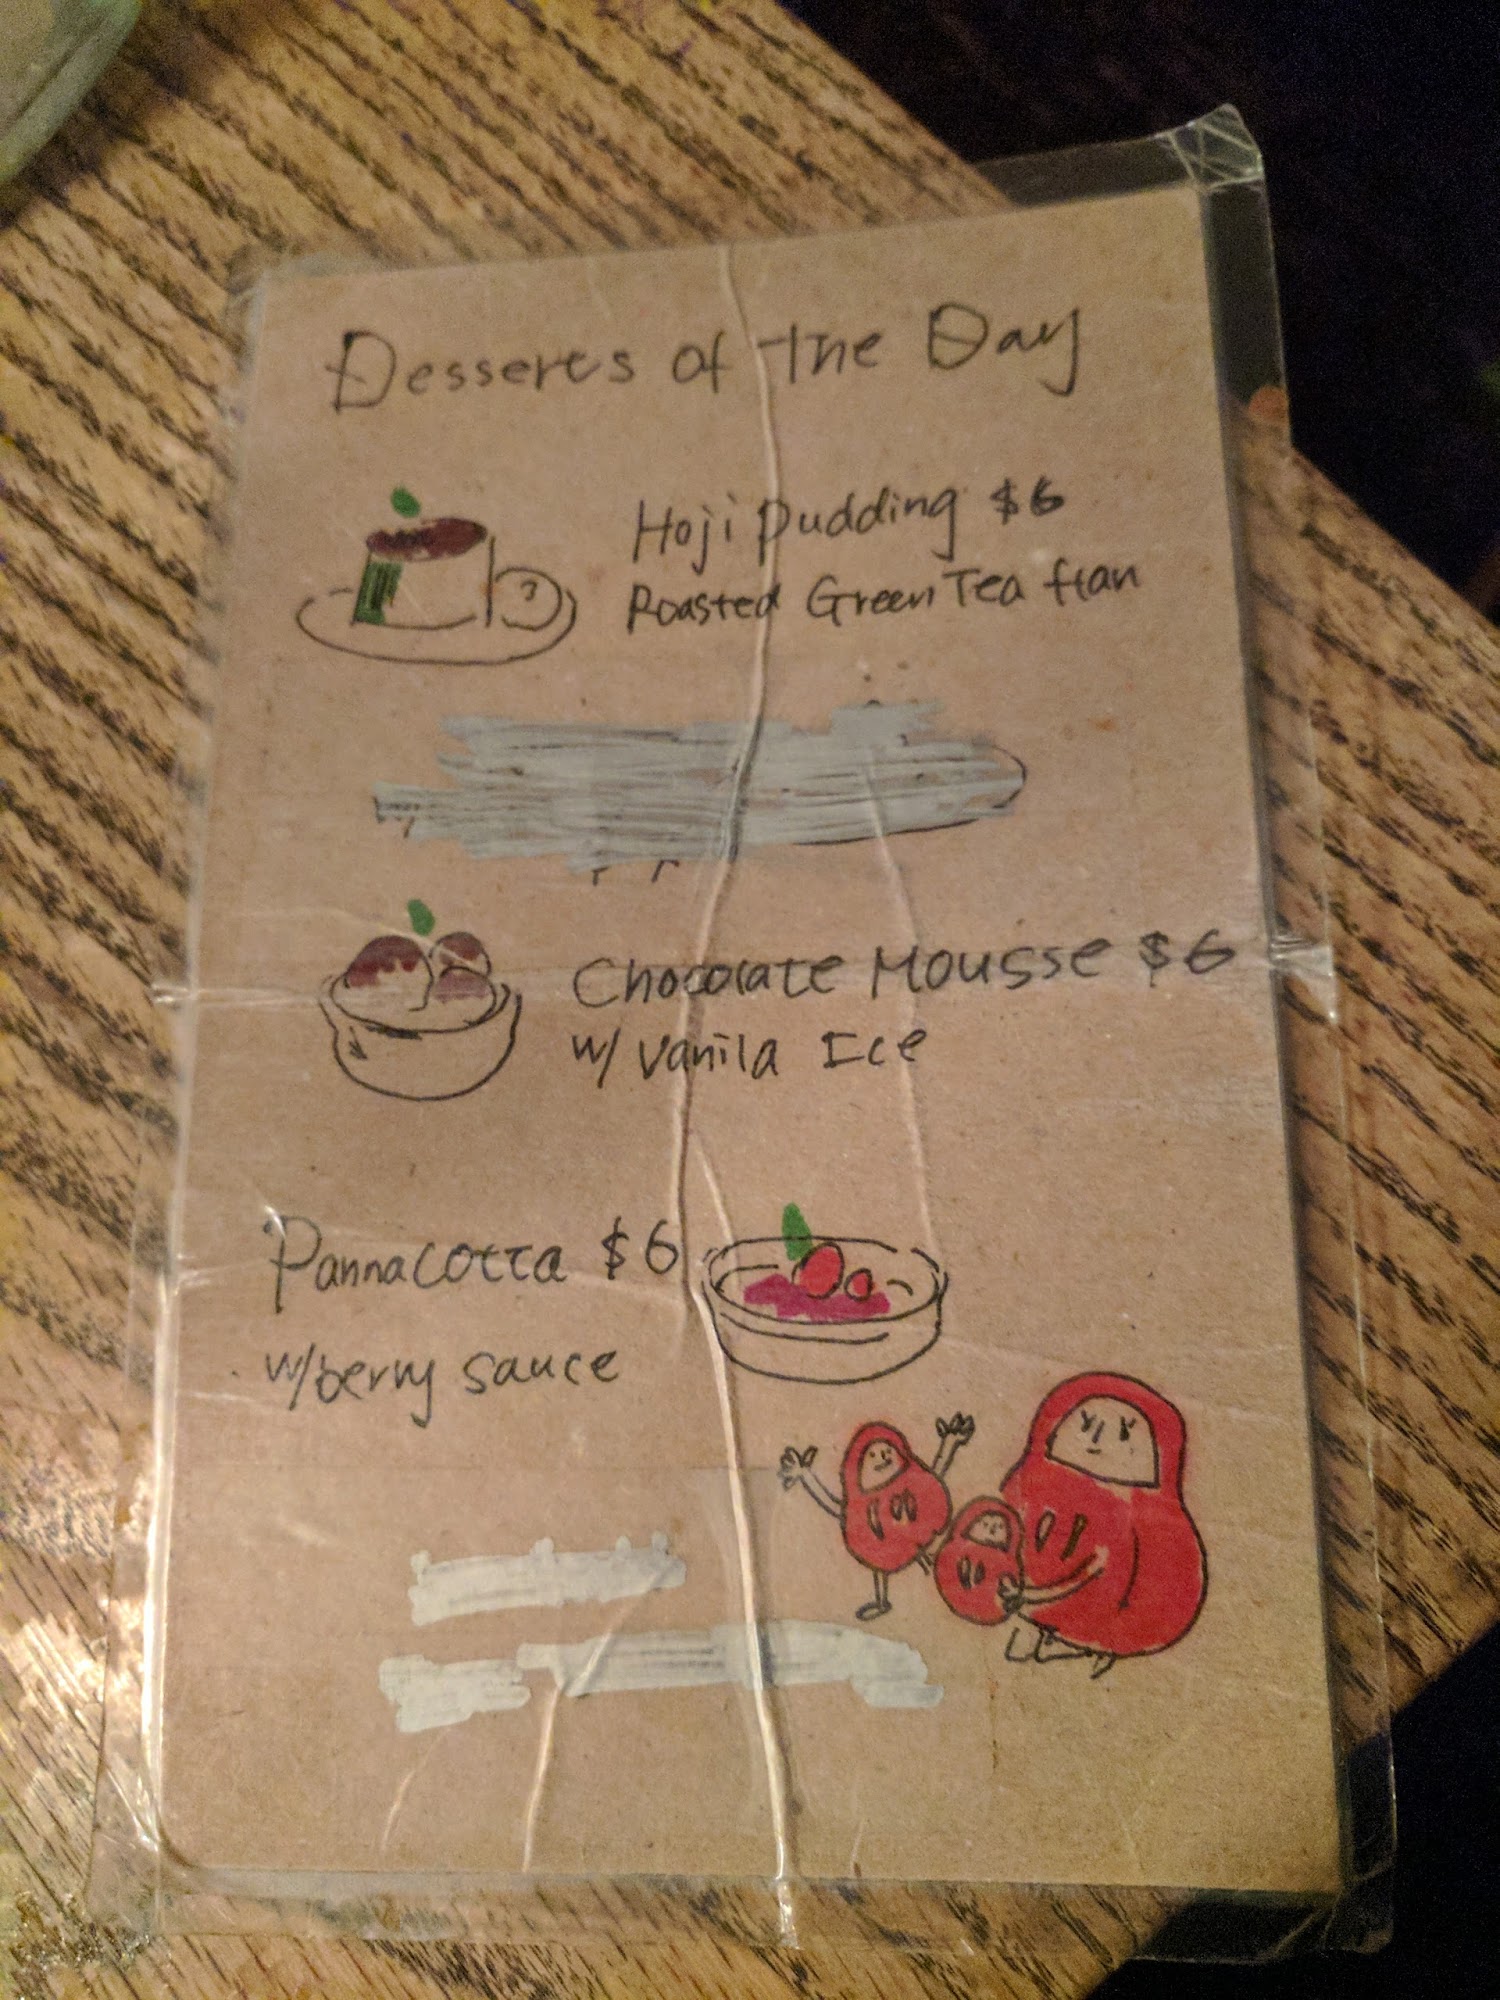 Desserts of the Day
Hoji Pudding $6
Roasted Green Tea flan
Chocolate Mousse $6
w/ Vanila Ice
Pannacotta $6
w/berry sauce